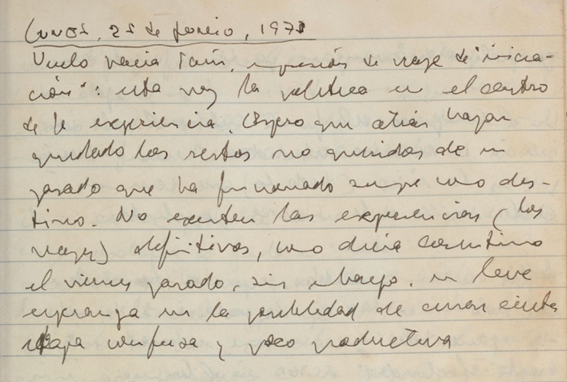 Lunes, 25 de junio, 1973
Vuelo hacia París, impresión de viaje de "inicia-
ción": esta vez la política en el centro
de la experiencia. Espero que atrás hayan
quedado los restos no queridos de un
pasado que ha funcionado siempre como des-
tino. No existen las experiencias (los
viajes) definitivos, como decía Constantino
el viernes pasado, sin embargo, una leve
esperanza en la posibilidad de cerrar cierta
etapa confusa y poco productiva